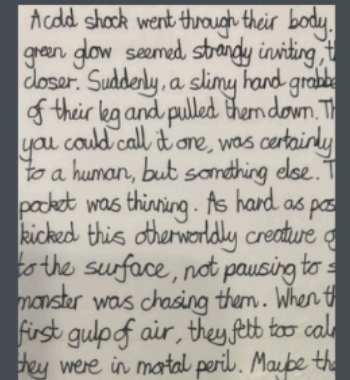 A cold shock went through their body.
green glow seemed strangly inviting, t
closer. Suddenly, a slimy hand grabbe
of their leg and pulled them down. Th
you could call it one, was certainly
to a human, but something else. T
pocket was thinning. As hard as pos
kicked this otherworldly creature o
to the surface, not pausing to s
monster was chasing them. When th
first gulp of air, they felt too cal
they were in mortal peril. Maybe the